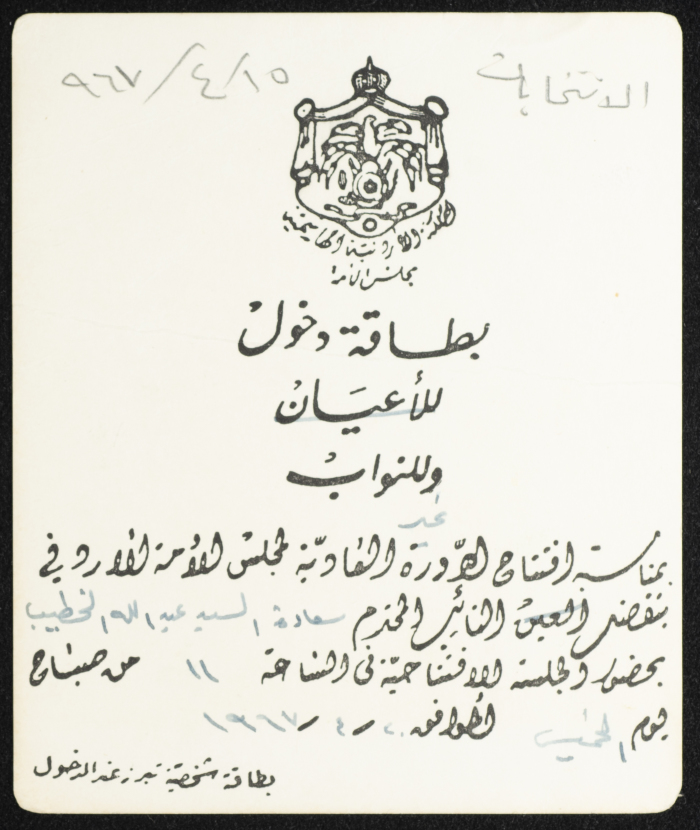 الانتخابات ٩٦٧/٤/١٥
المملكة الأردنية الهاشمية
مجلس الأمة
بطاقة دخول
للأعيان
وللنواب
غير
بمناسبة افتتاح الدورة العادية لمجلس الأمة الأردني
يتفضل العين النائب المحترم سعادة السيد عبد الله الخطيب
بحضور الجلسة الافتتاحية في الساعة ١١ من صباح
يوم الخميس الموافق ٢٠/٤/١٩٦٧
بطاقة شخصية تبرز عند الدخول